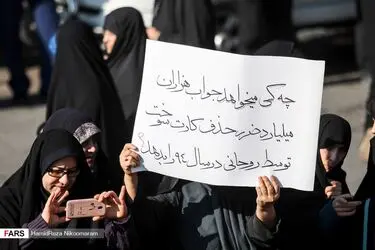 چه کسی میخواهد جواب هزاران
میلیارد ضرر حذف کارت سوخت
توسط روحانی در سال ۹۴ را بدهد؟
FARS
© HamidReza Nikoomaram